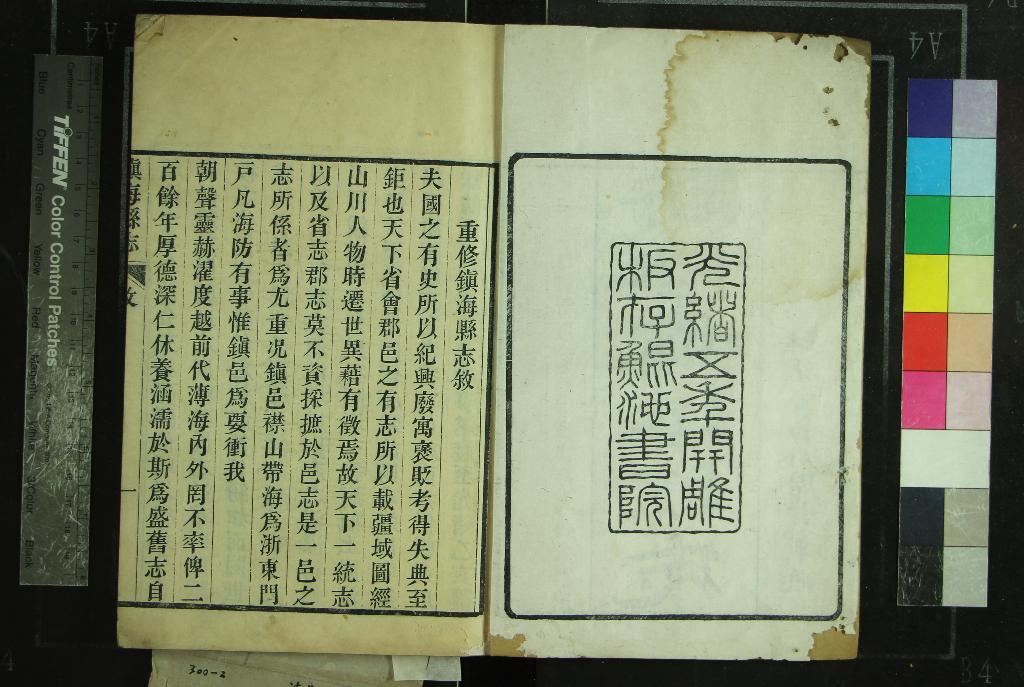 光緒五年開雕
板存鯤池書院
重修鎭海縣志敘
夫國之有史所以紀興廢寓褒貶考得失典至
鉅也天下省會郡邑之有志所以載疆域圖經
山川人物時遷世異藉有徵焉故天下一統志
以及省志郡志莫不資採摭於邑志是一邑之
志所係者爲尤重况鎭邑襟山帶海爲浙東門
戸凡海防有事惟鎭邑爲要衝我
朝聲靈赫濯度越前代薄海內外罔不率俾二
百餘年厚德深仁休養涵濡於斯爲盛舊志自
鎭海縣志
敘
一
TIFFEN Color Control Patches
Centimetres
Blue
Cyan
Green
Yellow
Red
Magenta
White
3/Color
Black
A4
A4
B4
300-2